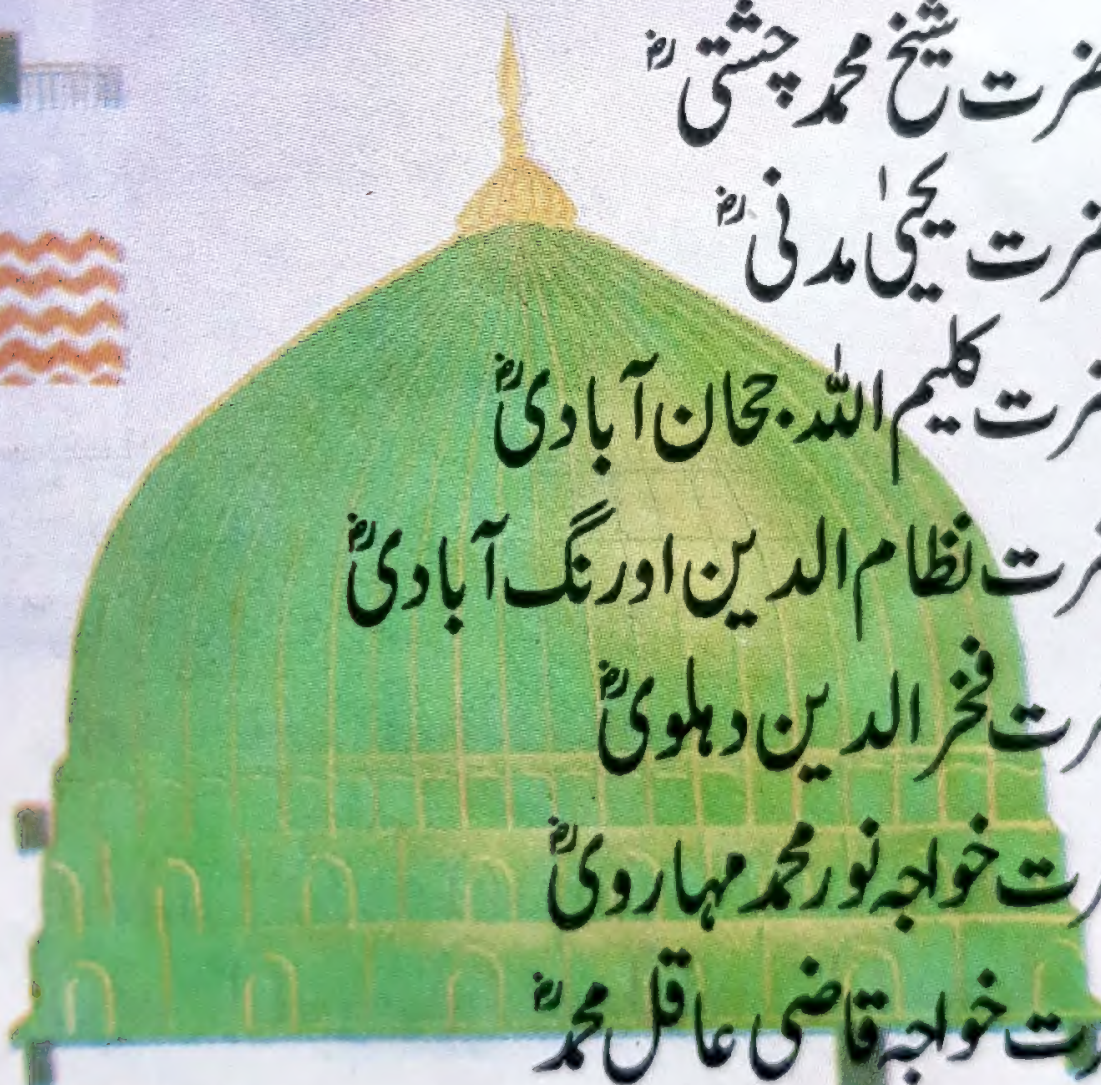 حضرت شیخ محمد چشتیؒ
حضرت یحییٰ مدنیؒ
حضرت کلیم اللہ جہان آبادیؒ
حضرت نظام الدین اورنگ آبادیؒ
حضرت فخر الدین دہلویؒ
حضرت خواجہ نور محمد مہارویؒ
حضرت خواجہ قاضی عاقل محمدؒ